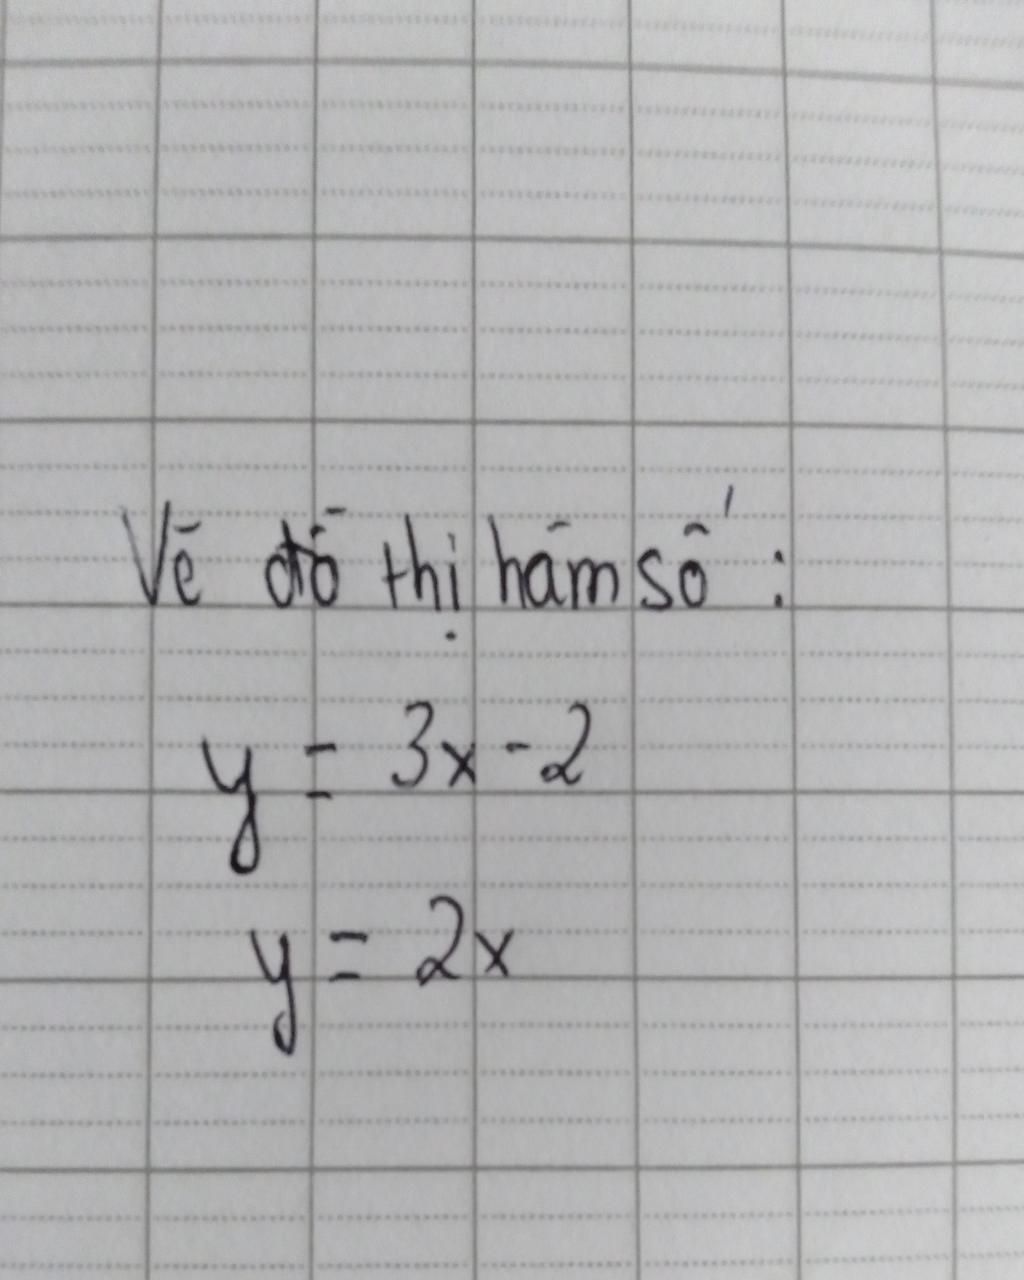 Vẽ đồ thị hàm số :
y = 3x - 2
y = 2x